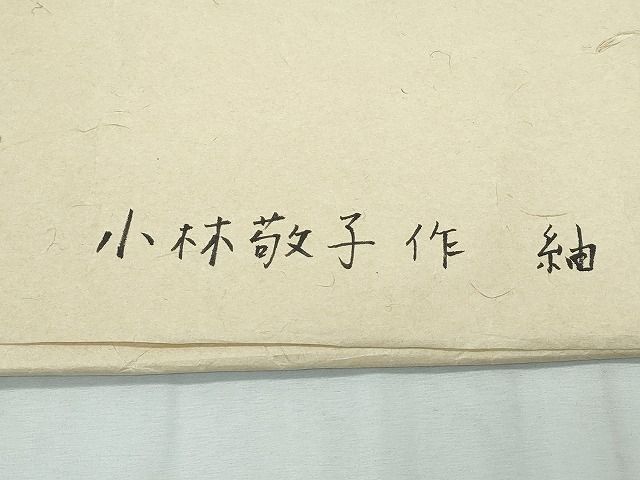 小林敬子作 紬